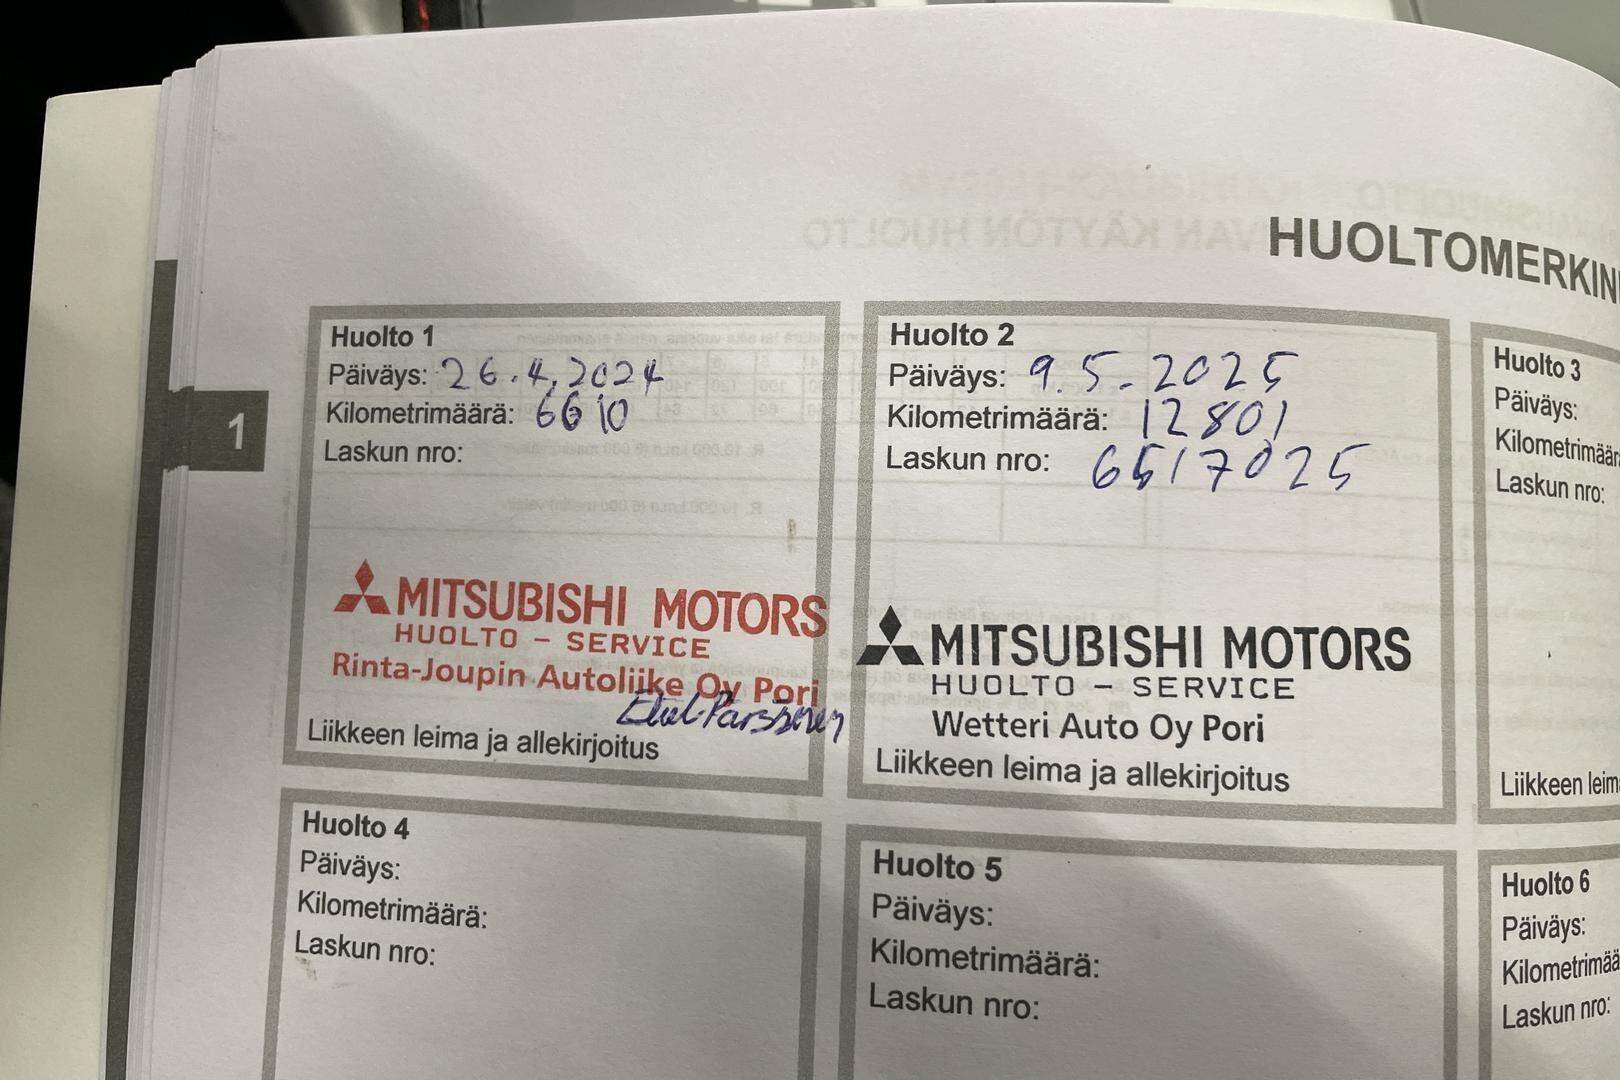 HUOLTOMERKIN
1
Huolto 1
Päiväys: 26.4.2024
Kilometrimäärä: 6610
Laskun nro:
MITSUBISHI MOTORS
HUOLTO – SERVICE
Rinta-Joupin Autoliike Oy Pori
Liikkeen leima ja allekirjoitus
Huolto 2
Päiväys: 9.5.2025
Kilometrimäärä: 12801
Laskun nro: 6517025
MITSUBISHI MOTORS
HUOLTO – SERVICE
Wetteri Auto Oy Pori
Liikkeen leima ja allekirjoitus
Huolto 3
Päiväys:
Kilometrimäär
Laskun nro:
Liikkeen leim
Huolto 4
Päiväys:
Kilometrimäärä:
Laskun nro:
Huolto 5
Päiväys:
Kilometrimäärä:
Laskun nro:
Huolto 6
Päiväys:
Kilometrimää
Laskun nro: